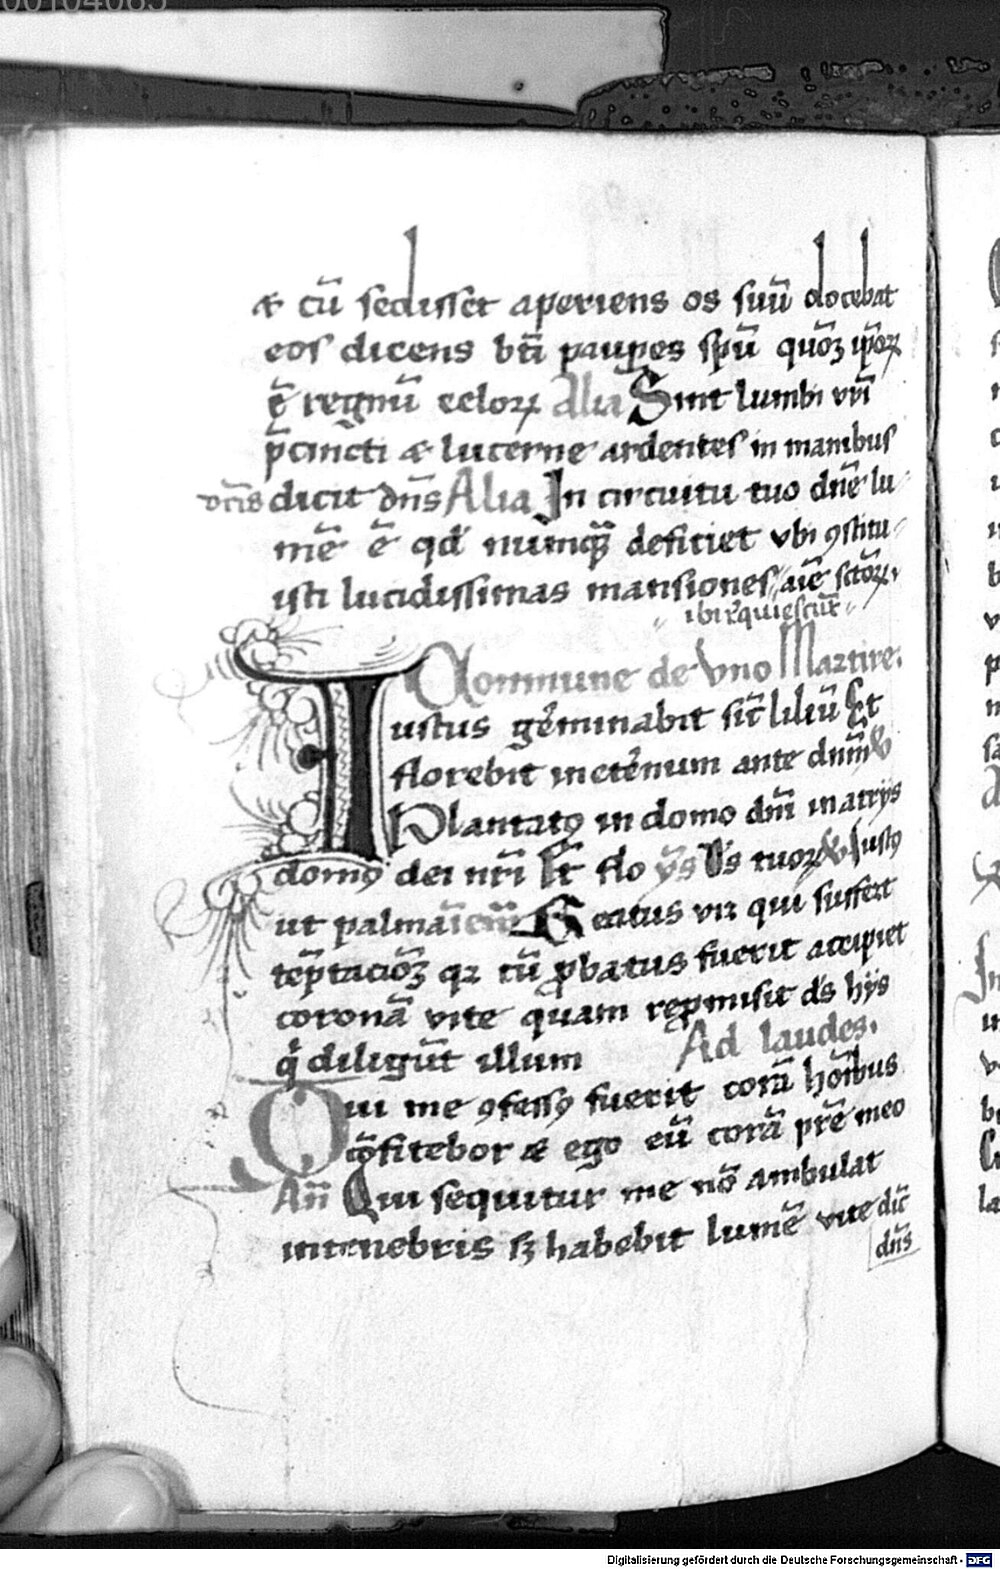 00104065
& cū sedisset aperiens os suū docebat
eos dicens bt̄i paup̱es sp̄u quōꝫ ip̄oꝝ
ē regnū celoꝝ Alia Sint lumbi vr̄i
p̄cincti & lucerne ardentes in manibus
vr̄is dicit dn̄s Alia In circuitu tuo dn̄e lu
mē ē qđ nunqᷓ deficiet vbi ꝯstitu
isti lucidissimas mansiones aīe sctōꝝ
ibi req̄uiescūt
Commune de vno Martire.
Iustus gėminabit sic̄ liliū Et
florebit in etėnum ante dnm̄ ꝟ
Plantatꝯ in domo dn̄i in atrijs
domꝯ dei nr̄i Et flo ꝟs Ds tuoꝝ ꝟ Iustꝯ
ut palma iem̄ Beatus vir qui suffert
tēptaciōꝫ qꝛ cū ꝓbatus fuerit accipiet
coronā vite quam repꝛomisit ds hijs
q̇ diligūt illum Ad laudes.
Qui me ꝯfessꝯ fuerit corā hoībus
cōfitebor & ego eū corā pr̄e meo
An̄ Qui sequitur me nō ambulat
in tenebris sꝫ habebit lumē vite dic̄
dn̄s
Digitalisierung gefördert durch die Deutsche Forschungsgemeinschaft - DFG